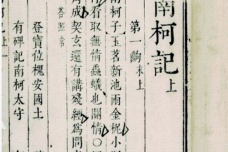 南柯記上
第一齣末上
南柯子玉茗新池雨金柅小
看取無情蟲蟻也關情○國
成契玄還有講殘經為問
答照常
登寶位槐安國土
有碑記南柯太守